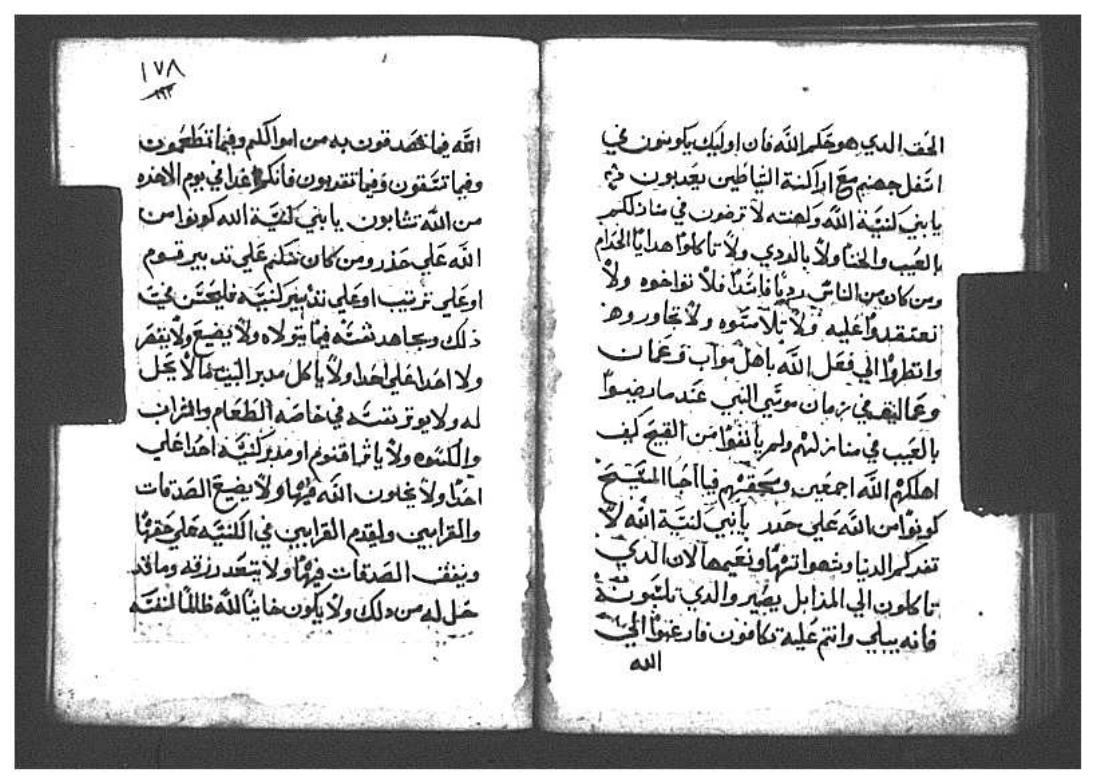 الحق الدي هو حكم الله فان اوليك يكونون في
اسفل جهنم مع اراكنة الشياطين يعدبون
يابني كنيسة الله ولاهنته لا ترضون في منازلكم
بالعيب والخنا ولا بالردي ولا تاكلوا هدايا الحرام
ومن كان من الناس رديا فاسدا فلا تواخوه ولا
تعتقدوا عليه ولا تلامسوه ولا تجاوروه
وانظروا الي فعل الله باهل مواب وعمان
وعماليق في زمان موسي النبي عند ما رضيوا
بالعيب في منازلهم ولم يانفوا من القبيح كيف
اهلكهم الله اجمعين ومحقهم فيا احبا المسيح
كونوا من الله علي حدر يابني كنيسة الله لا
تغركم الدنيا وشهواتها ونعيمها لان الدي
تاكلون الي المزابل يصير والدي تلبسونه
فانه يبلي وانتم عليه تكافون فارغبوا الي
الله
١٧٨
الله فيما تصدقون به من اموالكم وفيما تطعمون
وفيما تسقون وفيما تقربون فانكم غدا في يوم الاخره
من الله تثابون يابني كنيسة الله كونوا من
الله علي حدر ومن كان منكم علي تدبير قسوم
او علي ترتيب او علي تدبير كنيسه فليحسن في
دلك ويجاهد نفسه فيما يتولاه ولا يضيع ولا يقصر
ولا احدا علي احدا ولا ياكل مدبر البيت مالا يحل
له ولا يوثر نفسه في خاصه الطعام والشراب
والكسوه ولا ياثر اقنوم او مدبر كنيسه احدا علي
احدا ولا يخاون الله فيها ولا يضيع الصدقات
والقرابين وليقدم القرابين في الكنيسه علي حقها
وينفق الصدقات فيها ولا يتعد رزقه وما قد
حل له من دلك ولا يكون خاينا لله ظالما لنفسه